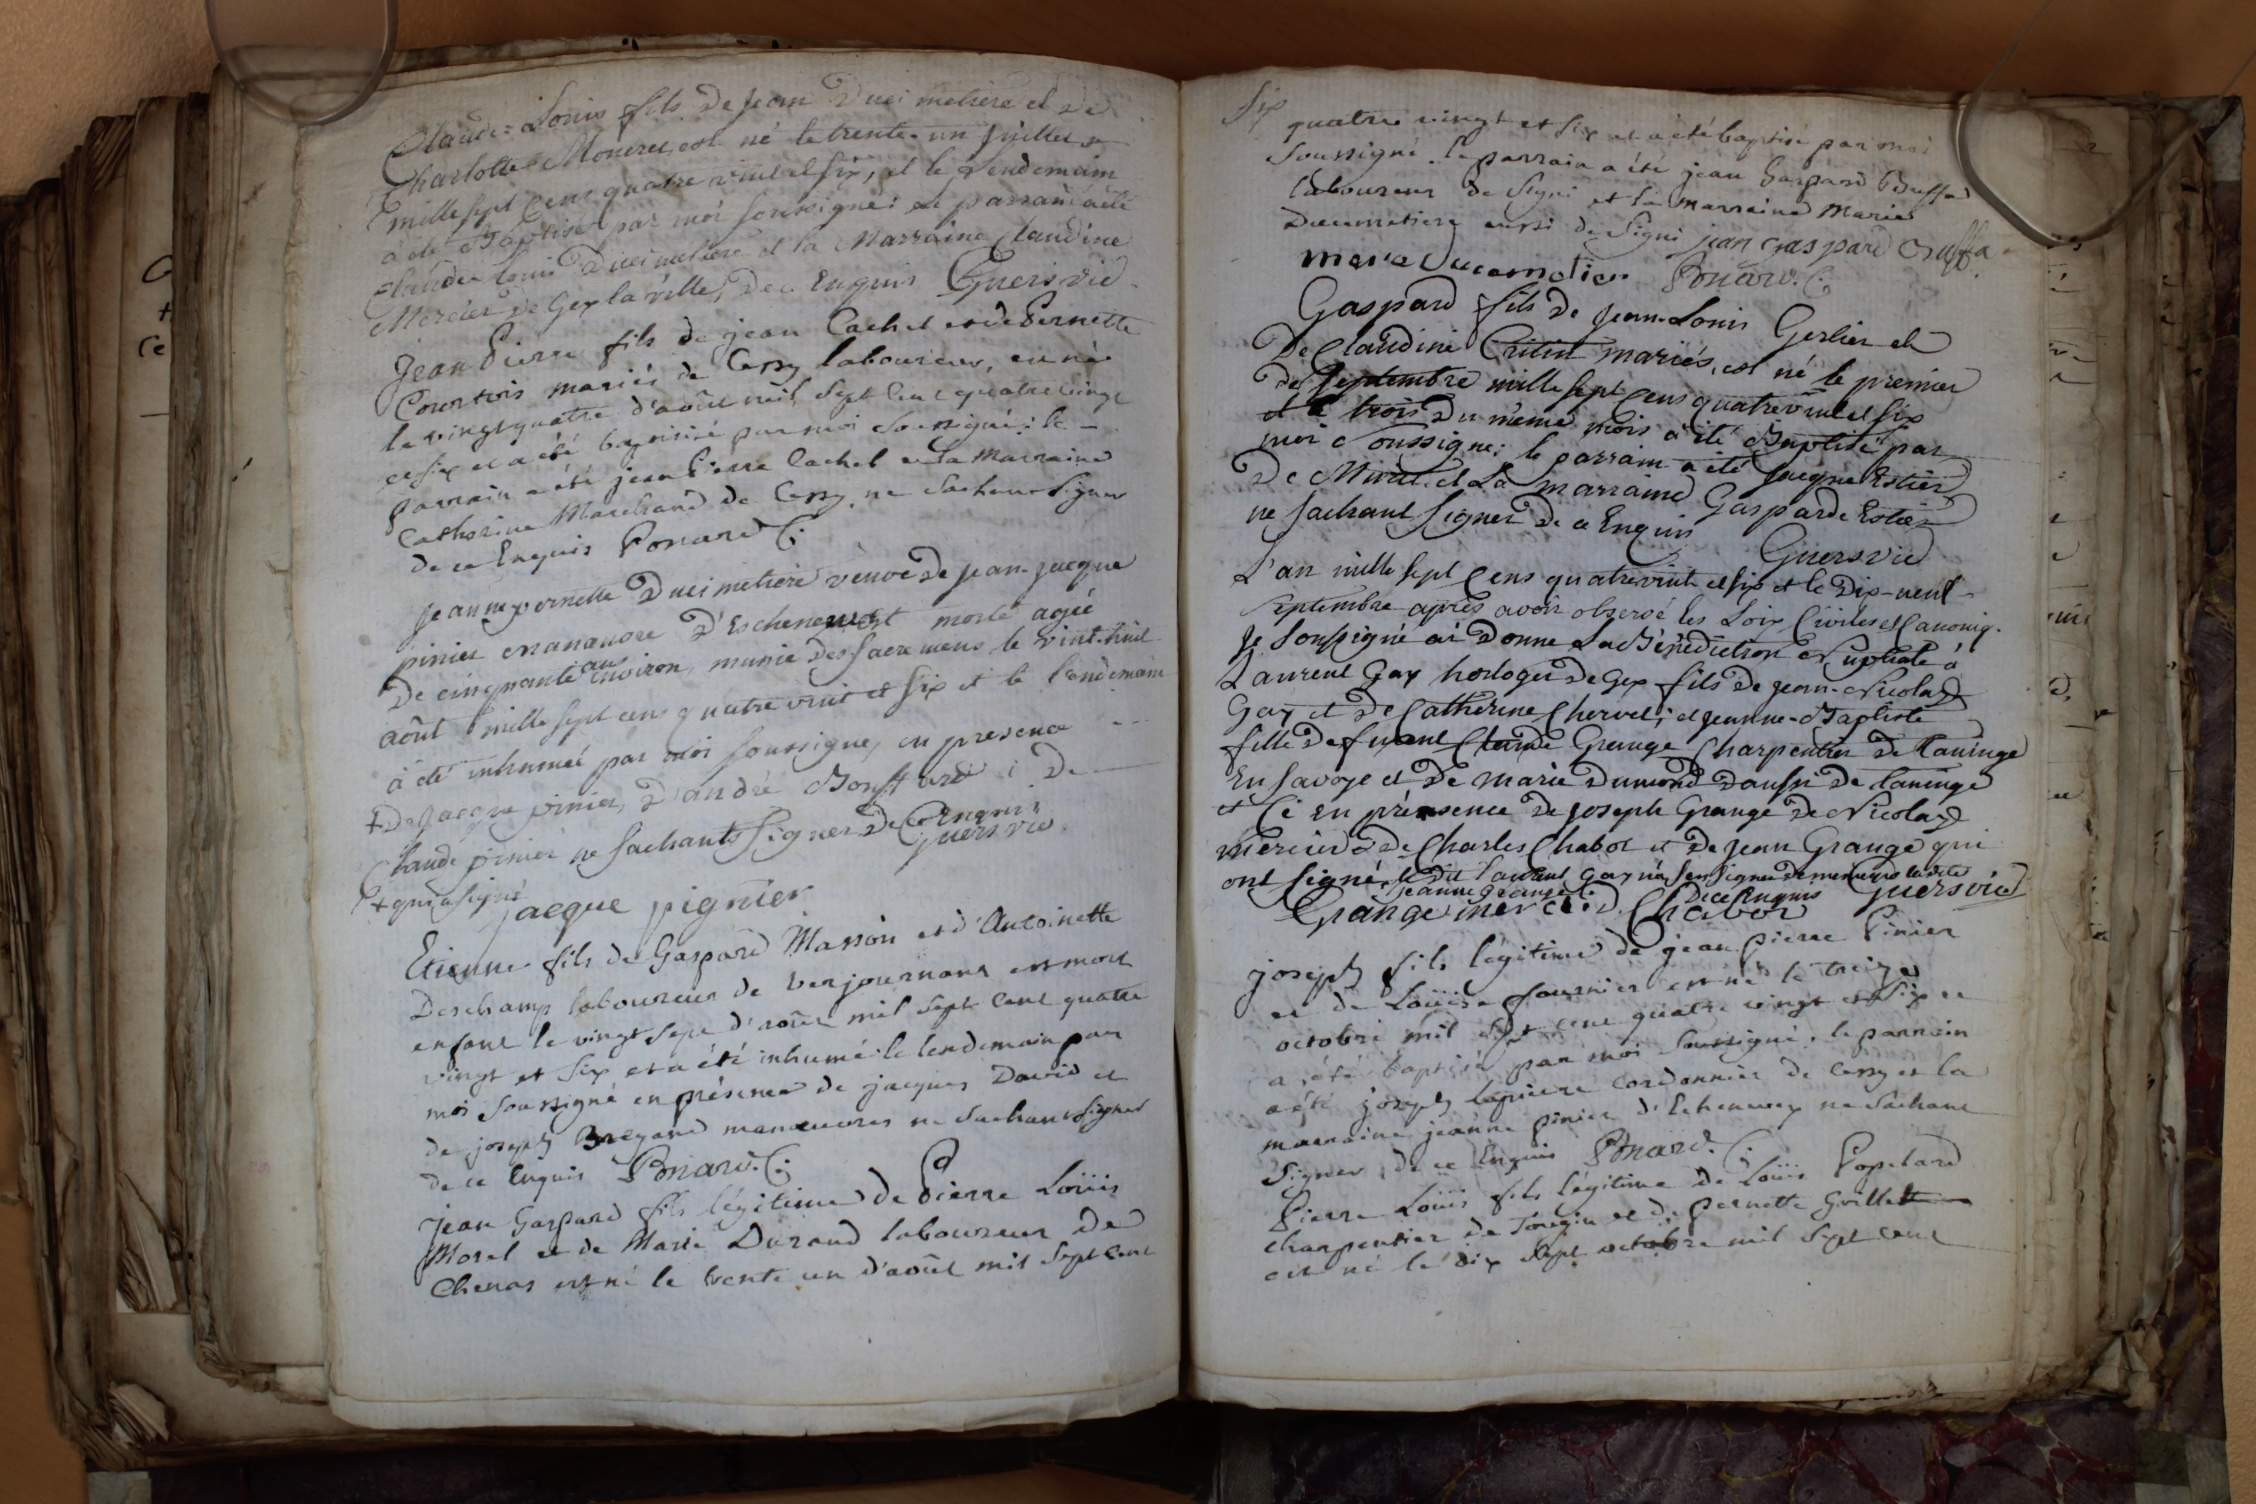 Claude-Louis fils de Jean Ducimetiere et de
Charlotte est né le trente-un juillet
mille sept cens quatre vint et six, et le lendemain
à été Baptisé par moi soussigné: le parrain à été
Claude Louis Ducimetiere et la Marraine Claudine
Mercier de Gex la ville, de ce Enquis Guers vic
Jean Pierre fils de jean Cachet et de Pernette
Courtois mariés de Cessy laboureur, est né
le vingt quatre d'août mil sept cent quatre vingt
et six et a été baptisé par moi soussigné: le
parrain a été jean Pierre Cachet et la Marraine
Catherine Marchand de Cessy ne sachant signer
de ce Enquis Ponard C.
Jeanne pernette Ducimetiere veuve de Jean-Jacque
pinier manœuvre d'Eschenevest morte agée
De cinquante ans environ, munie des sacremens le vint-huit
août mille sept cens quatre vint et six et le lendemain
à été inhumée par moi soussigné, en presence
+ De Jacque pinier, d'andré de
Claude pinier ne sachants signer de ce Enquis
Guers vic
+ qui à signé
jacque pignier
Etienne fils de Gaspard Masson et d'Antoinette
Deschamp laboureur de est mort
enfant le vingt sept d'août mil sept cent quatre
vingt et six et a été inhumé le lendemain par
moi soussigné en présence de jacques David et
de joseph manœuvres ne sachant signer
de ce Enquis Ponard. C.
Jean Gaspard fils légitime de Pierre Loüis
Morel et de Marie Durand laboureur de
Chenas est né le trente un d'août mil sept cent
six
quatre vingt et six et a été baptisé par moi
soussigné. le parrain a été jean Gaspard
laboureur de Segni et la marraine Marie
Ducimetiere aussi de Segni jean Gaspard
Ponard. C.
Gaspard fils de Jean-Louis Gerlier et
De Claudine mariés, est né le premier
de Septembre mille sept cens quatre vint et six
et le trois du même mois à été Baptisé par
moi soussigné; le parrain à été Jacque Estier
De et La marraine Gasparde Estier
ne sachant signer de ce Enquis
Guers vic
L'an mille sept cens quatre vint et six et le Dix-neuf
Septembre après avoir observé les Loix Civiles et Canoniq.
Je soussigné ai Donne La Bénédiction Nuptiale à
Laurent Gay horloger de Gex fils de Jean-Nicolas
Gay et de Catherine Chervet; et Jeanne-Baptiste
fille de Claude Grange Charpentier de Taninge
En Savoye et De Marie Dumond aussi de Taninge
et Ce En présence de Joseph Grange De Nicolas
mercier de Charles Chabot et de Jean Grange qui
ont signé, le dit Laurent Gay
jeanne Grange De ce Enquis Guers vic
Grange mercier Chabot
joseph fils légitime de jean pierre Pinier
et de Loüise fournier est né le treize
octobre mil sept cent quatre vingt et six et
a été baptisé par moi soussigné. le parrain
a été joseph cordonnier de Cessy et la
marraine jeanne pinier d'Echenevex ne sachant
signer de ce Enquis Ponard. C.
Pierre Loüis fils légitime de Loüis Popelard
charpentier de et de pernette Grillet
est né le dix sept octobre mil sept cent